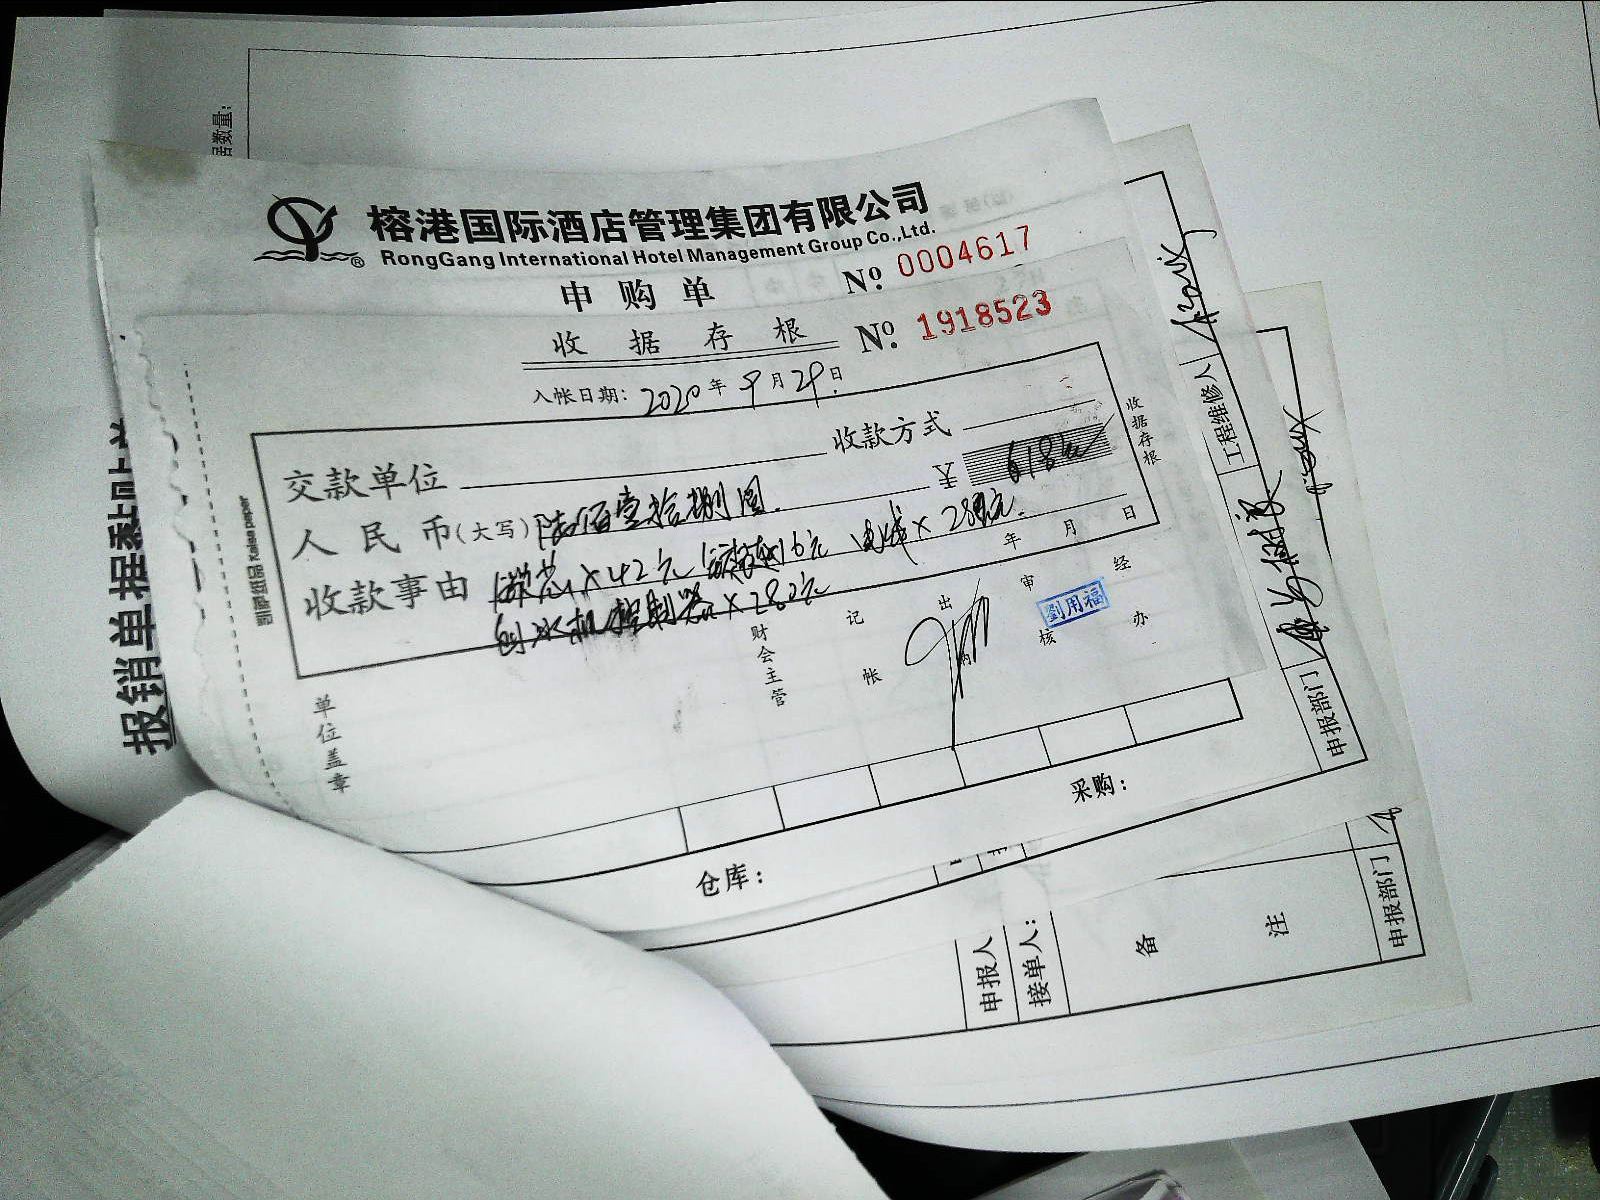 居数量:
榕港国际酒店管理集团有限公司
RongGang International Hotel Management Group Co.,Ltd.
申购单 No 0004617
收据存根 No 1918523
入帐日期: 2020年9月29日
交款单位 收款方式
人民币(大写)陆佰壹拾捌圆 ¥618元
收款事由 锁芯×42元 16元 电线×280元
制冰机控制器×280元
年月日
收据存根
财会主管 记帐 出纳 审核 经办
劉用福
单位盖章
凯丽纸品 Kalee paper
报销单据黏贴单
仓库: 采购:
工程维修人
申报部门
申报人
接单人:
备注
申报部门